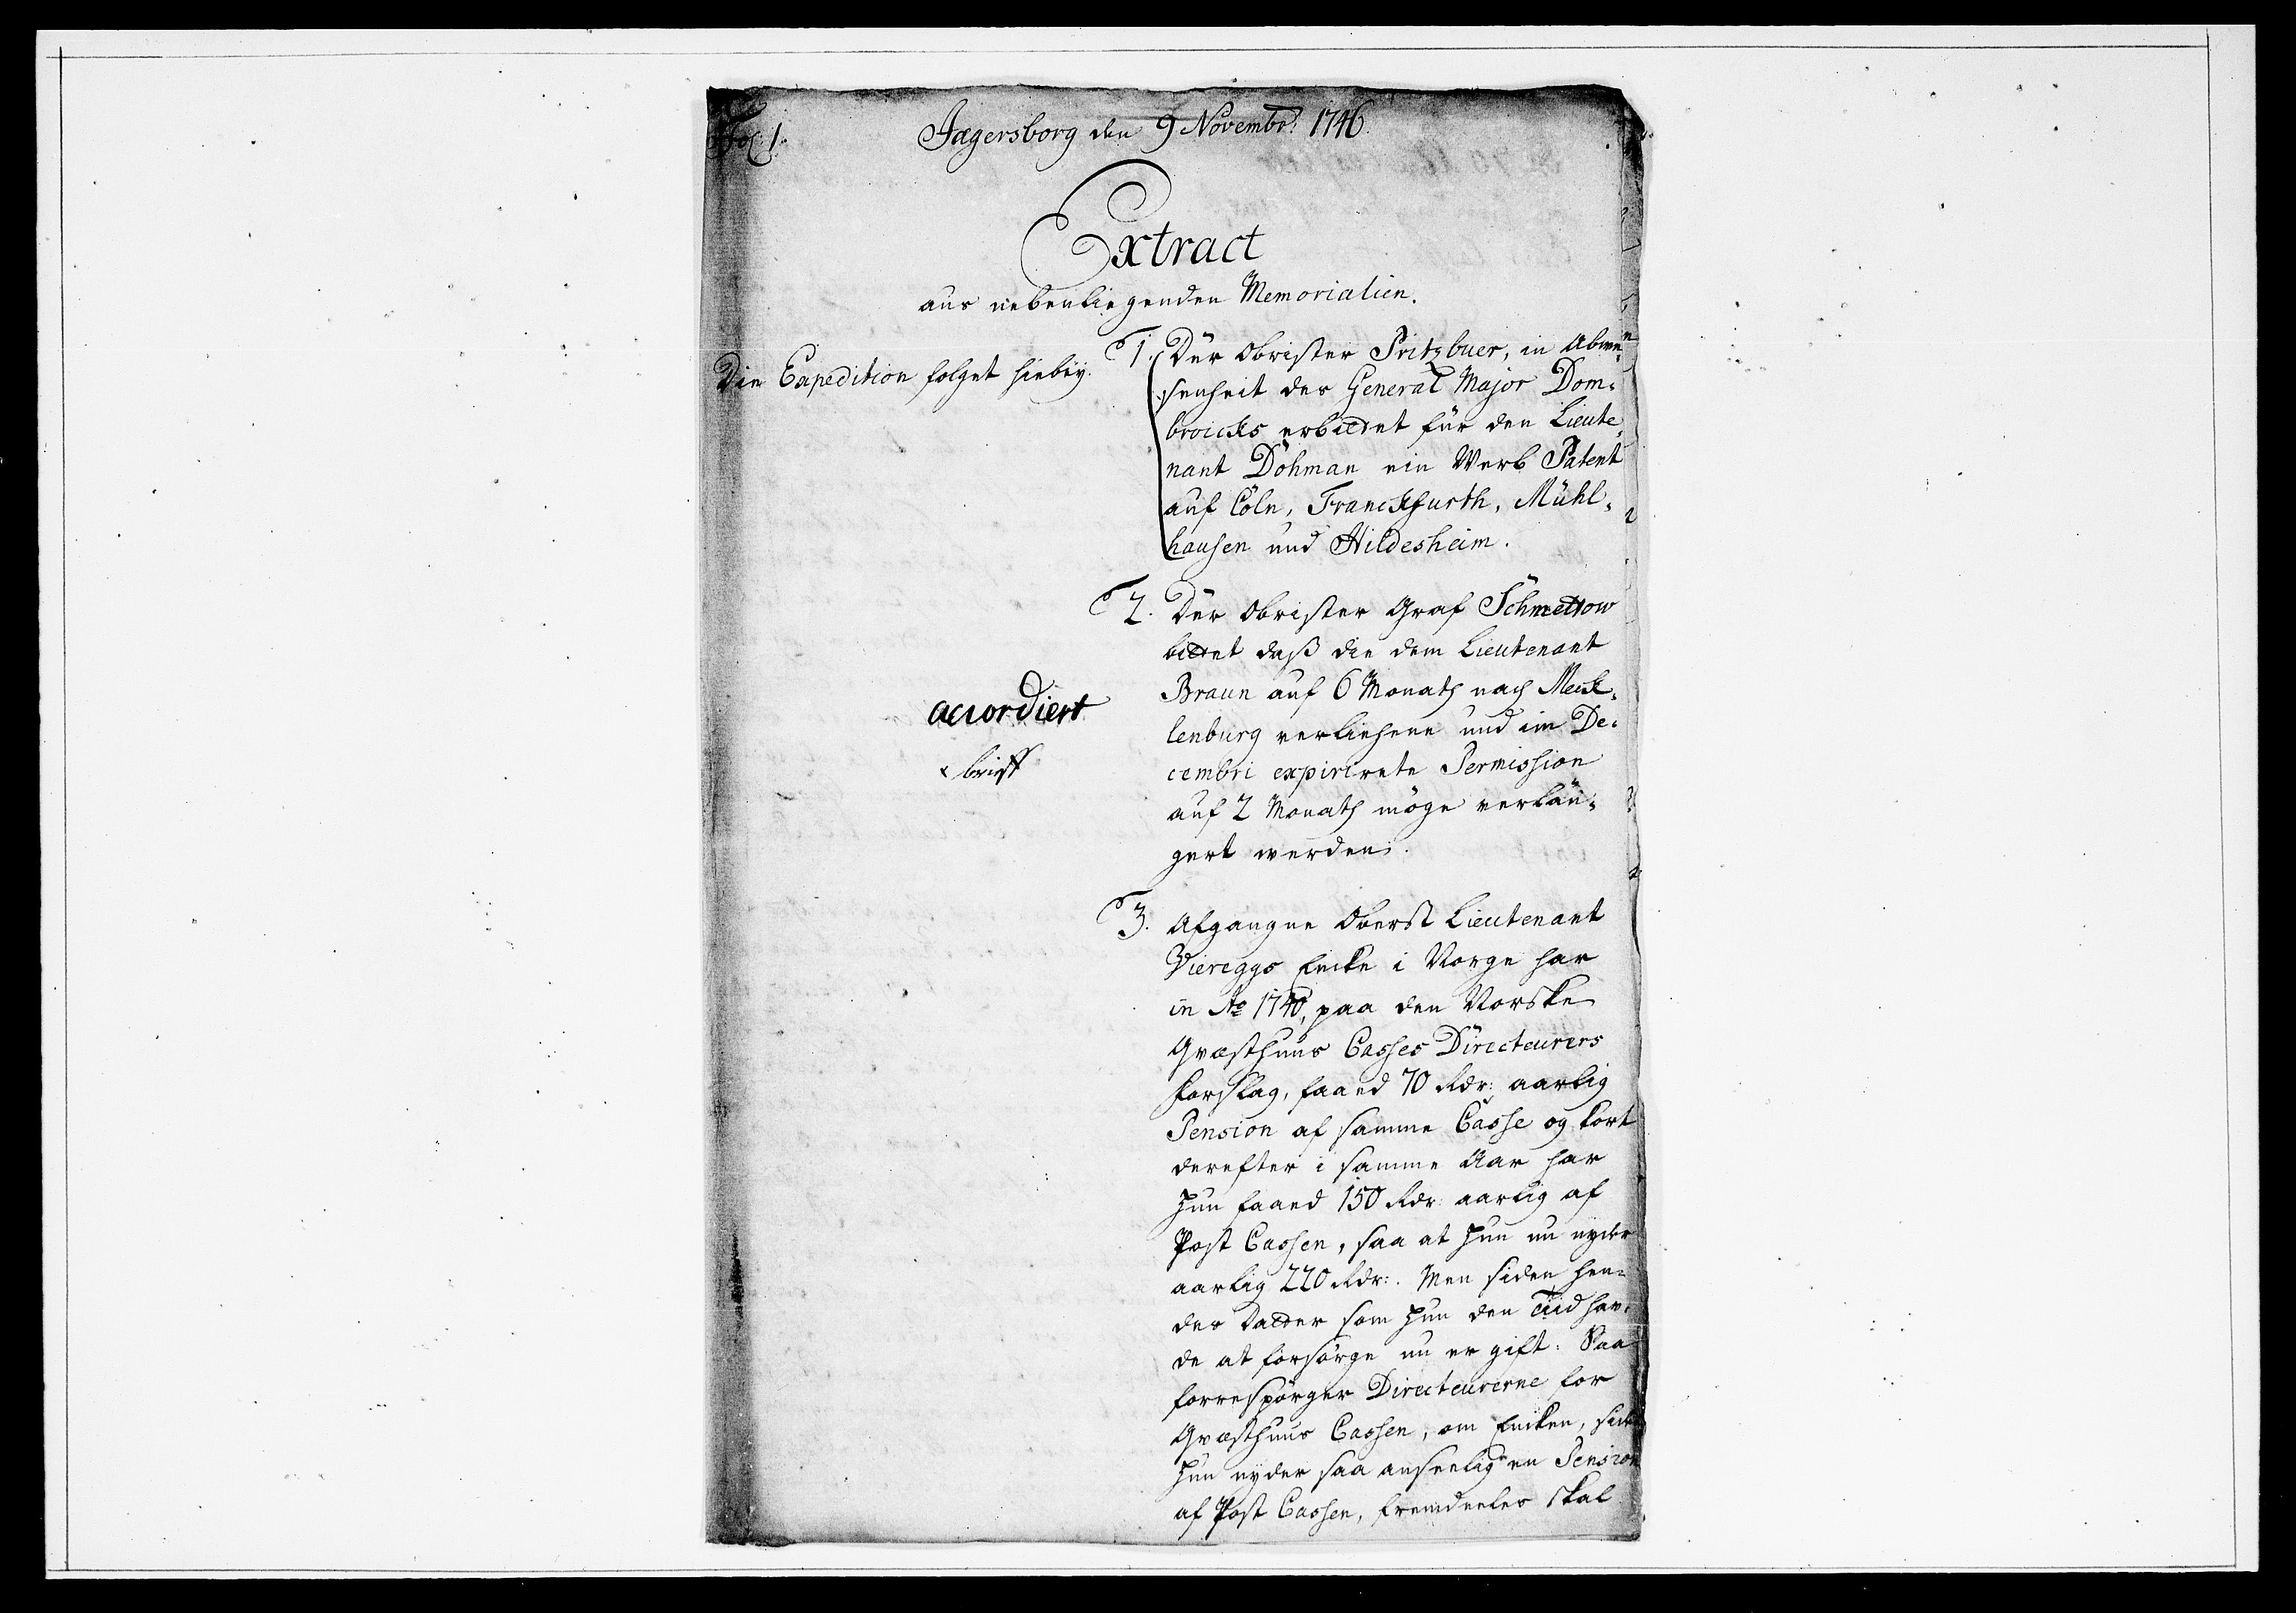 Fol: 1.
Jægersborg den 9 Novembr: 1746.
Extract
aus nebenliegenden Memorialien.
Die Expedition folget hiebey.
1. Der Obrister Pritzbuer, in Abwe-
senheit des General Major Dom-
broicks erbittet für den Lieute-
nant Döhman ein Werb Patent
auf Cöln, Franckfurth, Mühl-
hausen und Hildesheim.
2. Der Obrister Graf Schmettow
bittet daß die dem Lieutenant
Braun auf 6 Monath nach Meck-
lenburg verliehene und im De-
cembri expirirete Permission
auf 2 Monath möge verlän-
gert werden.
accordiert
brieff
3. Afgangne Oberst Lieutenant
Viereggs Encke i Norge har
in Ao 1740, paa den Norske
Qvæsthuus Casses Directeurers
forslag, faaed 70 Rdr: aarlig
Pension af samme Casse og kort
derefter i samme Aar har
hun faaed 150 Rdr: aarlig af
Post Cassen, saa at hun nu nyder
aarlig 220 Rdr:. Men siden hen-
des Datter som hun den Tiid hav-
de at forsørge nu er gift: Saa
forrespørger Directeurerne for
Qvæsthuus Cassen, om Encken, siden
hun nyder saa anseelig en Pension
af Post Cassen, fremdeeles skal